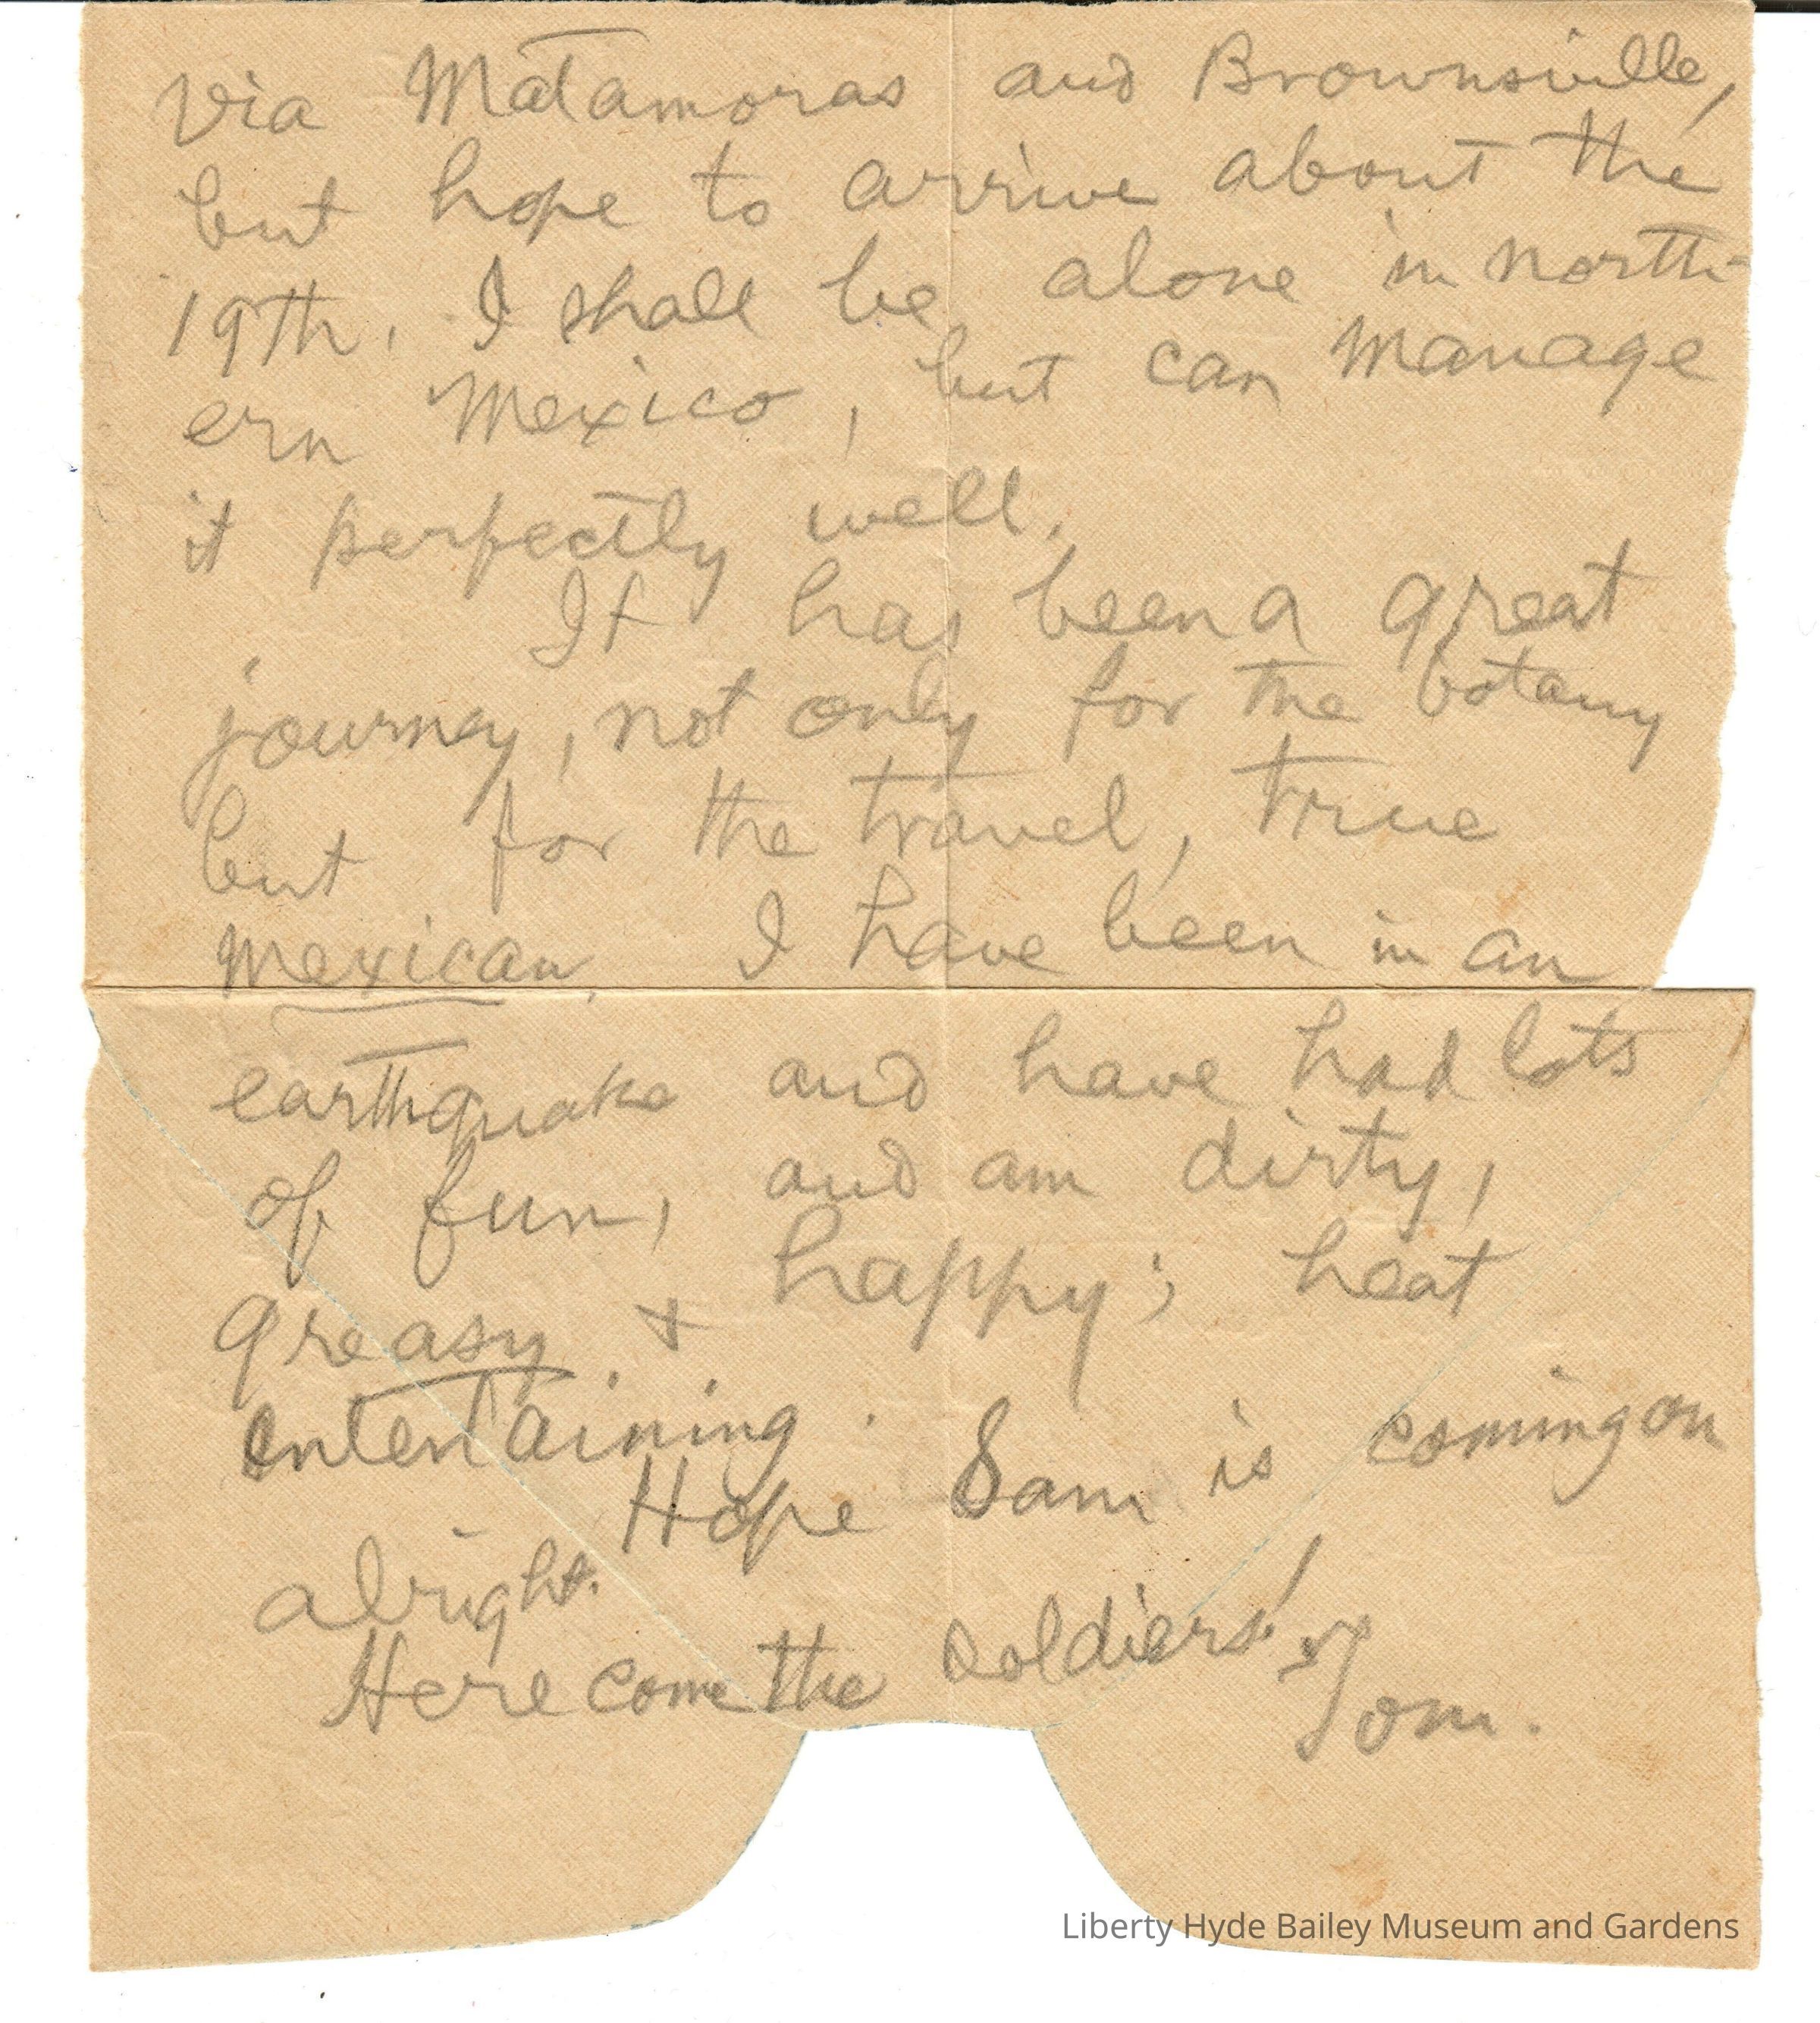 via Matamoras and Brownsville,
but hope to arrive about the
19th. I shall be alone in north-
ern Mexico, but can manage
it perfectly well.
It has been a great
journey, not only for the botany
but for the travel, true
Mexican. I have been in an
earthquake and have had lots
of fun, and am dirty,
greasy & happy; heat
entertaining.
Hope Sam is coming on
alright.
Here come the soldiers!
Tom.
Liberty Hyde Bailey Museum and Gardens